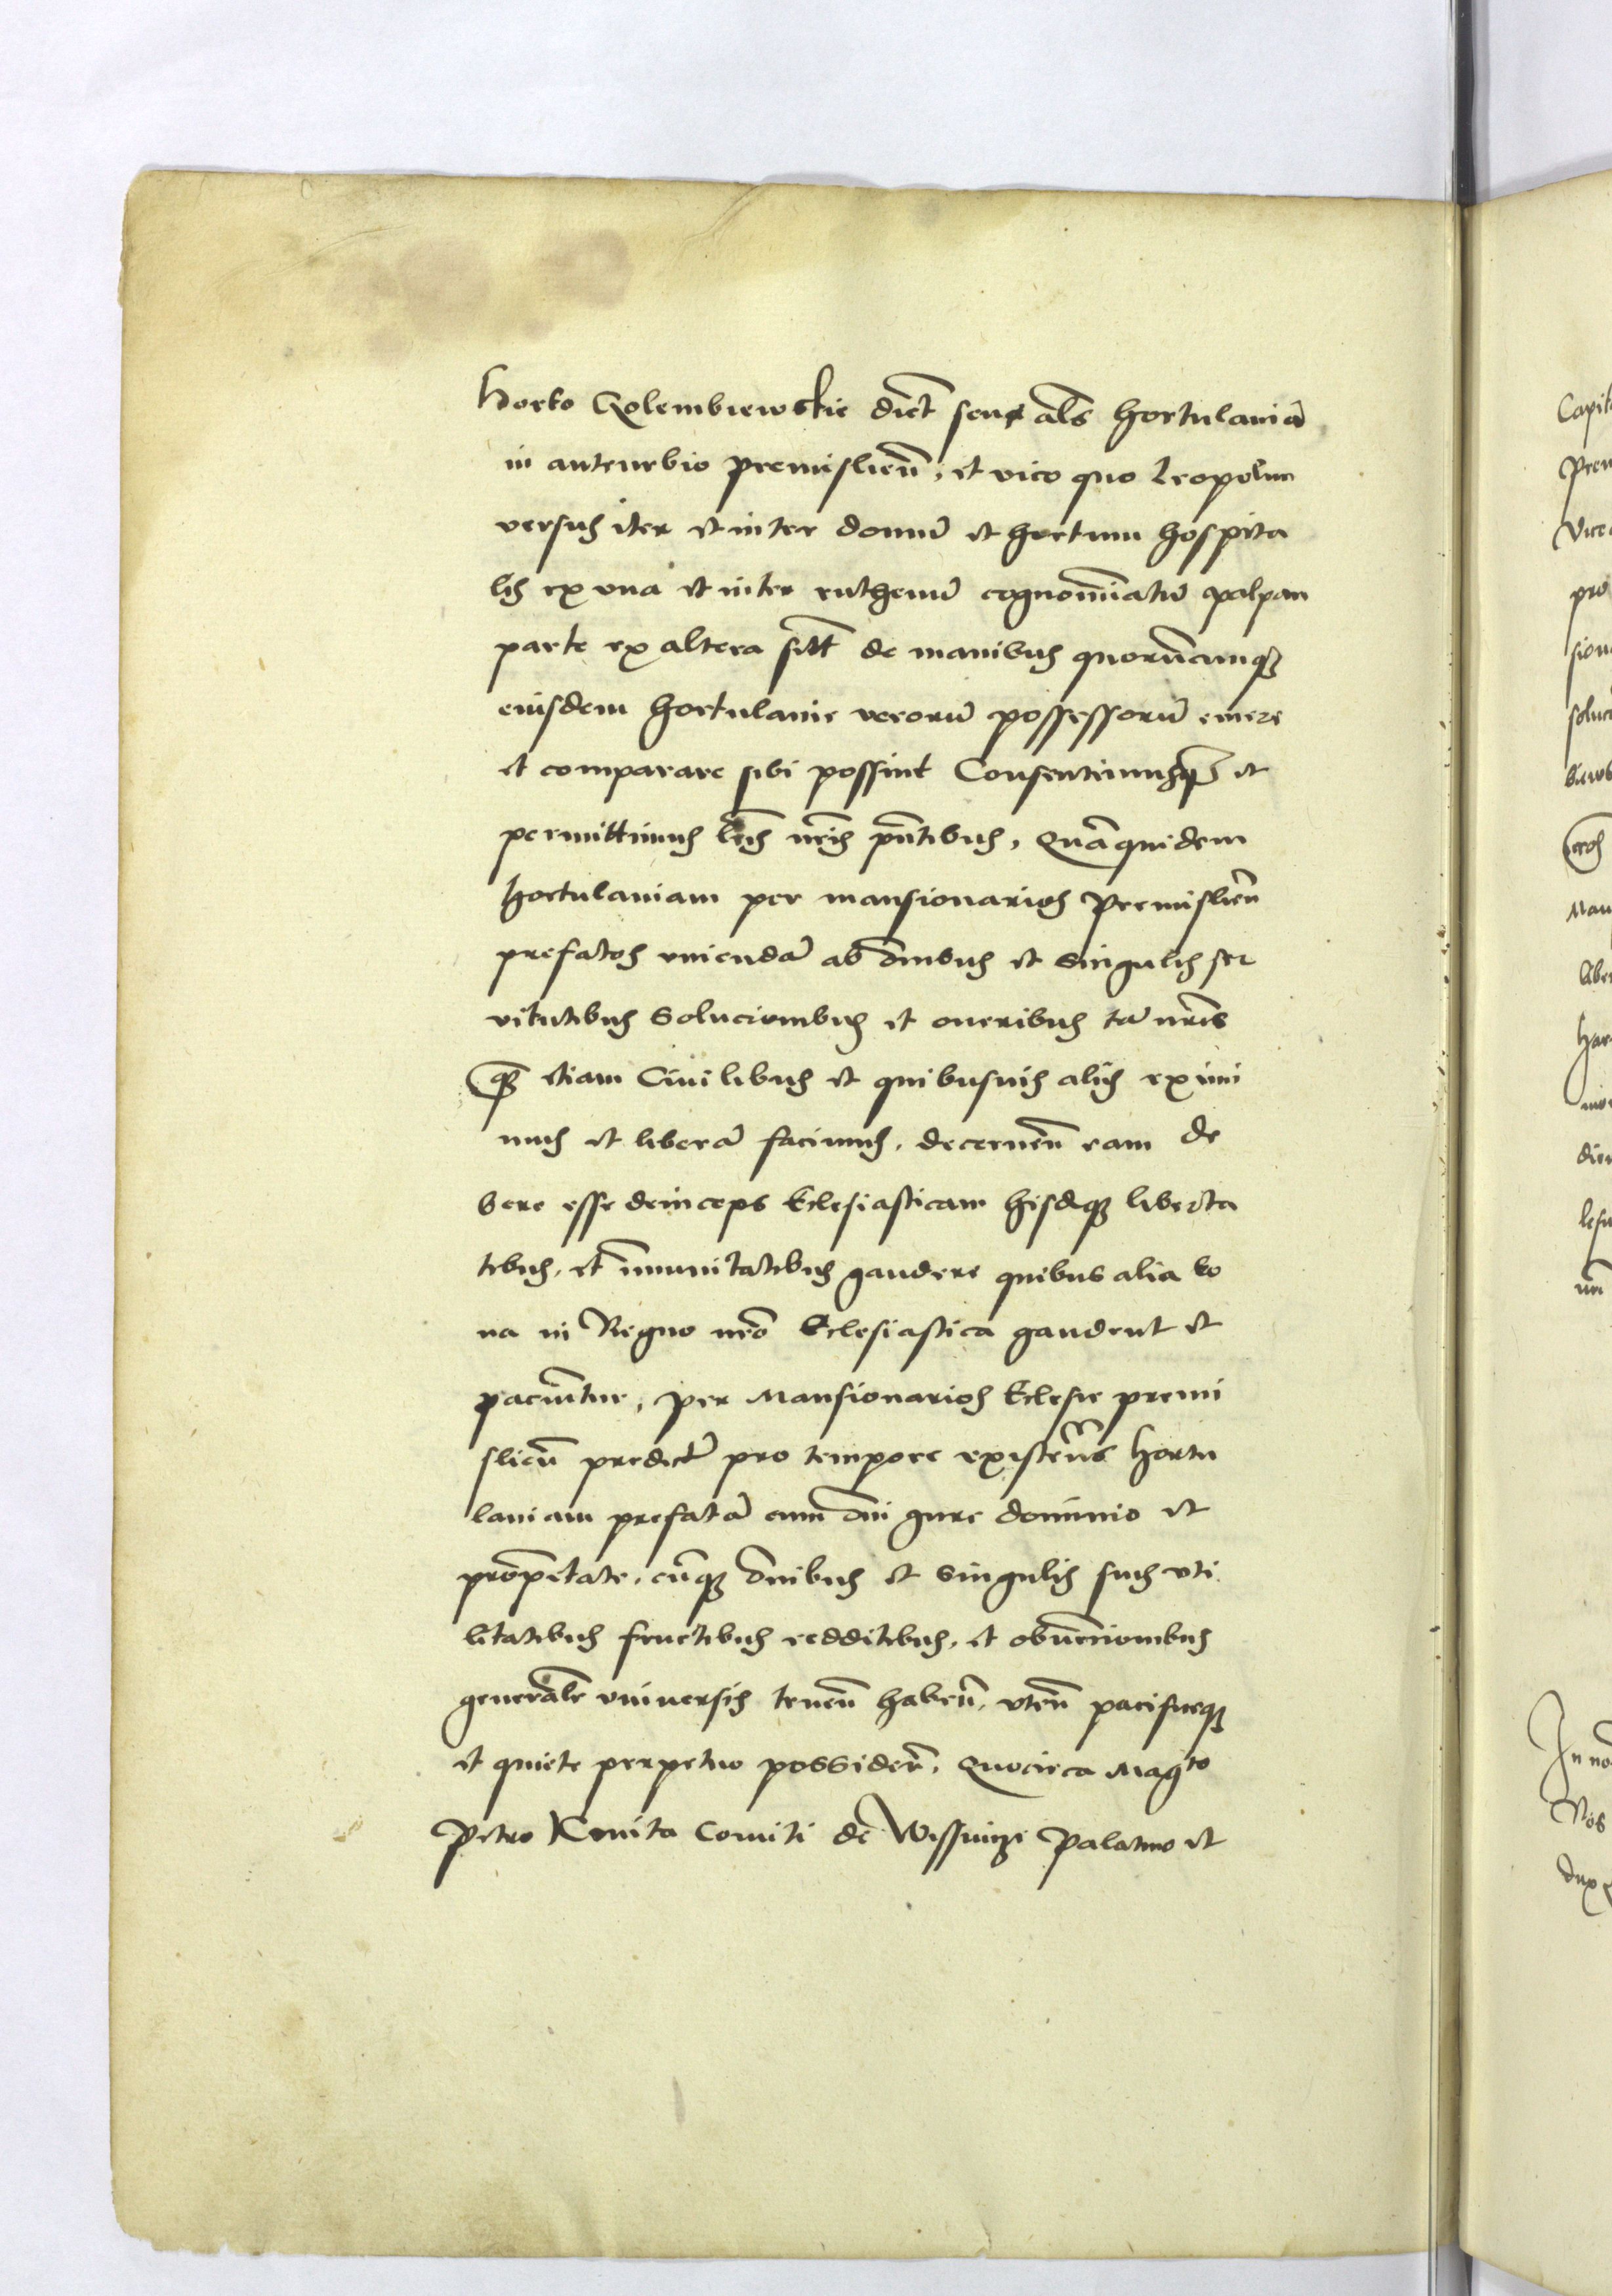 Horto Golembiewskie dict̃ seu als̃ hortulaniã
in anteurbio premislieñ, et vico quo Leopolim
versus iter et inter domũ et hortum hospita
lis ex vna et inter ruthenũ cognoĩnatũ palpan
parte ex altera sitt̃ de manibus quorũcunqȝ
eiusdem hortulanie verorũ possessorũ emere
et comparare sibi possint Consentimusqȝ et
permittimus lr̃is nr̃is pñtibus, Quã quidem
hortulaniam per mansionarios premislieñ
prefatos vniendã ab õnibus et singulis ser
vitutibus solucionibus et oneribus tã nr̃is
qȝ etiam Ciuilibus et quibusuis aliis eximi
mus et liberã facimus, decerneñ eam de
bere esse deinceps Eclesiasticam hisdeqȝ liberta
tibus, et ĩmunitatibus gaudere quibus alia bo
na in Regno nr̃o Eclesiastica gaudent et
paciũtur, per Mansionarios Eclesie premi
slieñ predict̃ pro tempore existeñs hortu
laniam prefatã cum õni iure dominio et
propr̃etate, cũqȝ õnibus et singulis suis vti
litatibus fructibus redditibus, et obuẽcionibus
generalr̃ vniuersis teneñ habeñ, vteñ pacificeqȝ
et quiete perpetuo possideñ, Quocirca Magco
Petro Kmita Comiti de Wissnicze Palatino et
Capit
Prem
Vice
pro
sion
soluci
Man
liber
har
dict
In no
Nos
dux